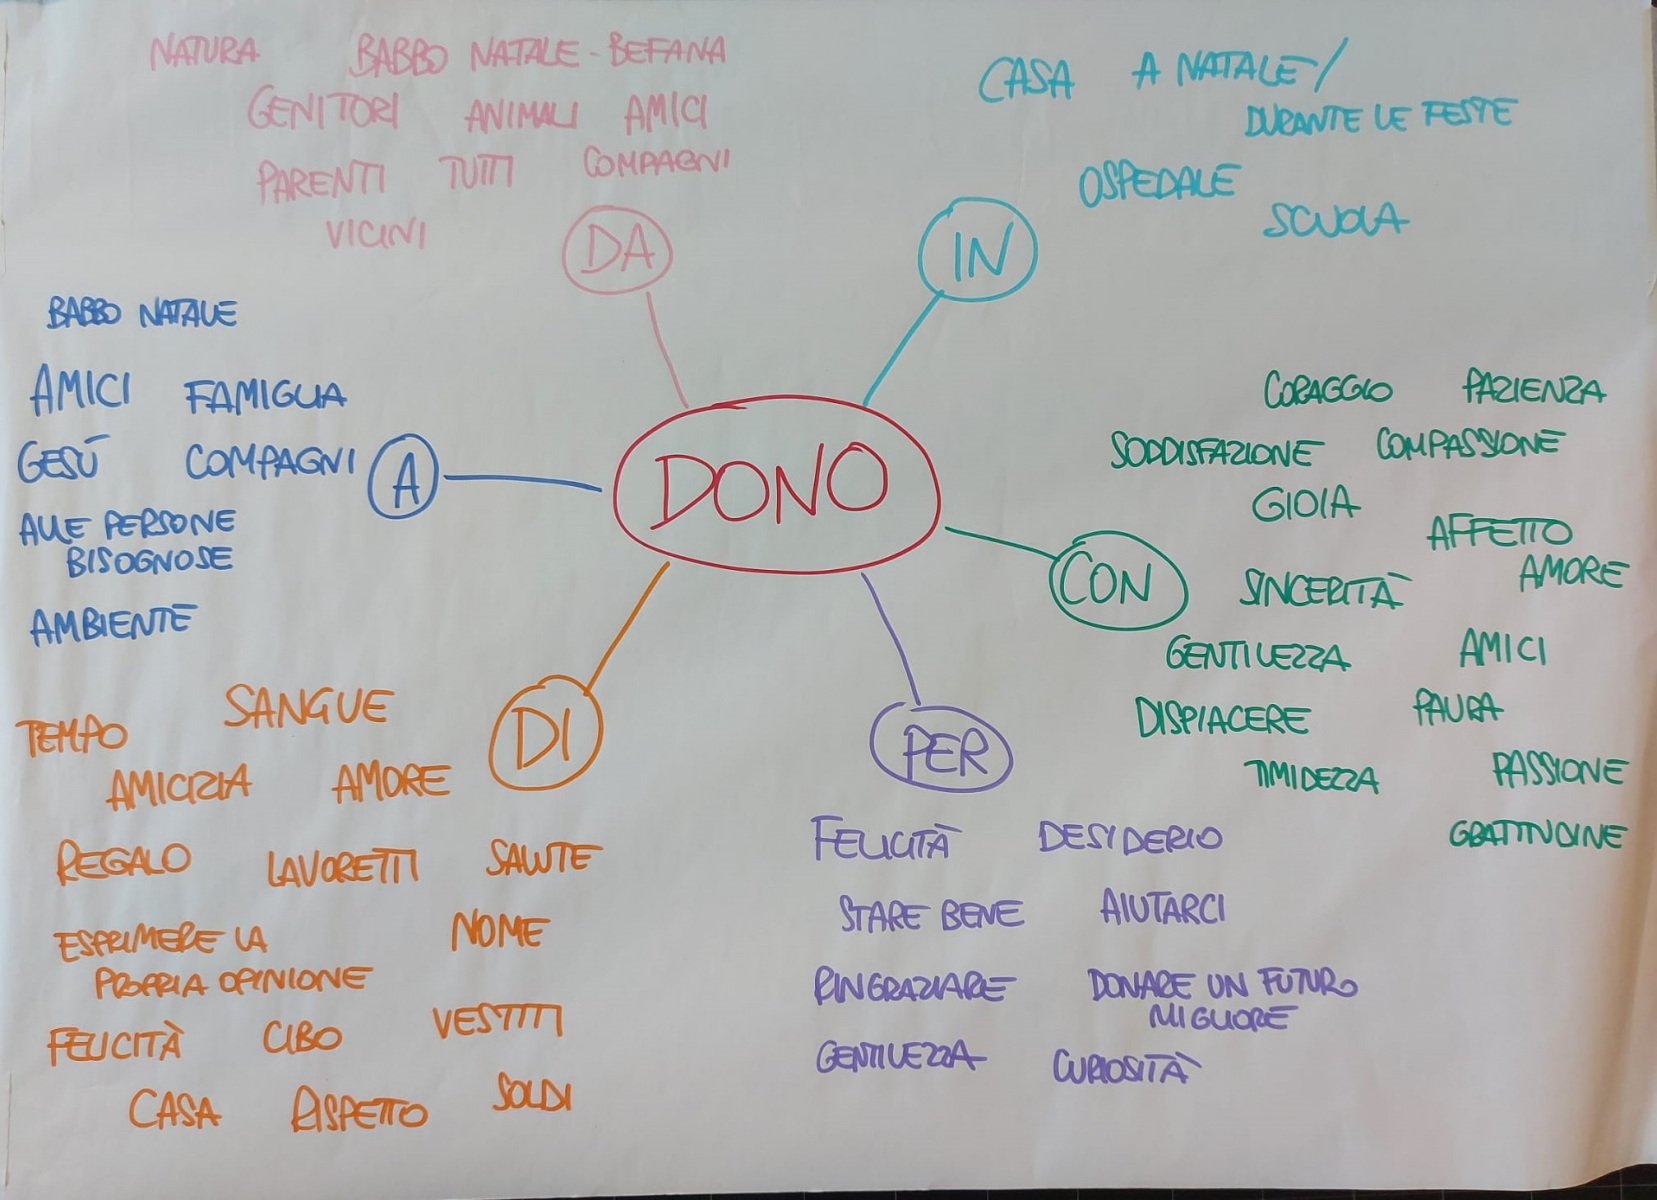 NATURA BABBO NATALE - BEFANA
GENITORI ANIMALI AMICI
PARENTI TUTTI COMPAGNI
VICINI
DA
CASA A NATALE/
DURANTE LE FESTE
OSPEDALE
SCUOLA
IN
BABBO NATALE
AMICI FAMIGLIA
GESÙ COMPAGNI
ALLE PERSONE
BISOGNOSE
AMBIENTE
A
DONO
CORAGGIO PAZIENZA
SODDISFAZIONE COMPASSIONE
GIOIA
AFFETTO
SINCERITÀ AMORE
GENTILEZZA AMICI
DISPIACERE PAURA
TIMIDEZZA PASSIONE
GRATITUDINE
CON
DI
TEMPO SANGUE
AMICIZIA AMORE
REGALO LAVORETTI SALUTE
ESPRIMERE LA
PROPRIA OPINIONE
NOME
FELICITÀ CIBO VESTITI
CASA RISPETTO SOLDI
PER
FELICITÀ DESIDERIO
STARE BENE AIUTARCI
RINGRAZIARE DONARE UN FUTURO
MIGLIORE
GENTILEZZA CURIOSITÀ